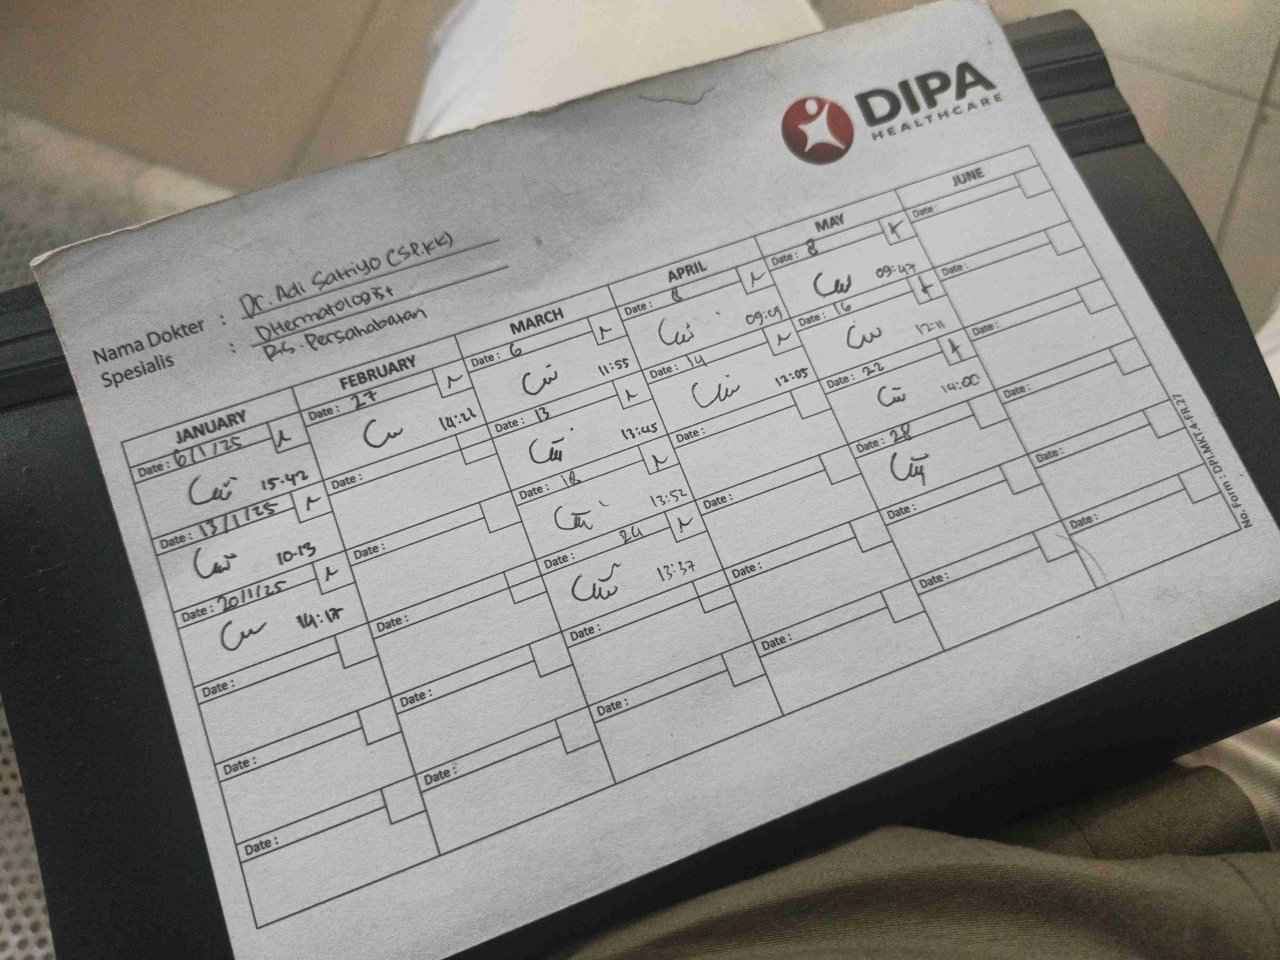 DIPA
HEALTHCARE
Nama Dokter : Dr. Adi Satriyo (SP.KK)
Spesialis : DHermatologist
RS. Persahabatan
JANUARY
Date : 6/1/25 N
15:42
Date : 13/1/25 N
10.13
Date : 20/1/25 N
14:17
Date :
Date :
Date :
FEBRUARY
Date : 27 N
14:22
Date :
Date :
Date :
Date :
Date :
MARCH
Date : 6 N
11:55
Date : 13 N
13:45
Date : 18 N
13:52
Date : 24 N
13:37
Date :
Date :
APRIL
Date : 8 N
09:09
Date : 14 N
12:05
Date :
Date :
Date :
Date :
MAY
Date : 8
09:47
Date : 16
12:11
Date : 22
14:00
Date : 28
Date :
Date :
JUNE
Date :
Date :
Date :
Date :
Date :
Date :
No. Form : DPI.MKT.4-FR.27